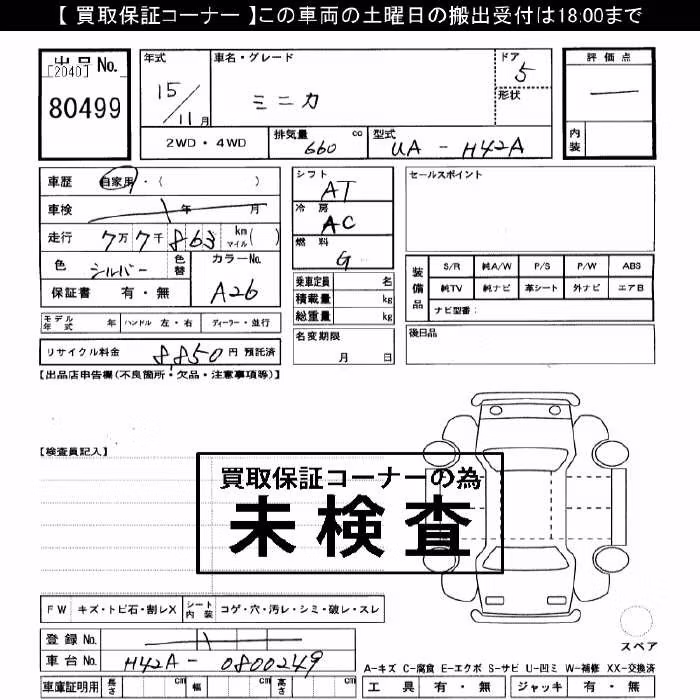 【 買取保証コーナー 】この車両の土曜日の搬出受付は18:00まで
出品 No.
[2040]
80499
年式
15/11月
車名・グレード
ミニカ
ドア
5
形状
評価点
—
内装
2WD・4WD
排気量 660 cc
型式 UA - H42A
車歴 自家用・( )
車検 年 月
走行 7万7千863 km マイル ( )
色 シルバー 色替
カラーNo.
A26
保証書 有・無
シフト
AT
冷房
AC
燃料
G
乗車定員 名
積載量 kg
総重量 kg
セールスポイント
装備品
S/R 純A/W P/S P/W ABS
純TV 純ナビ 革シート 外ナビ エアB
ナビ型番:
モデル年式 年 ハンドル 左・右 ディーラー・並行
名変期限
月 日
後日品
リサイクル料金 8,850円 預託済
【出品店申告欄(不良箇所・欠品・注意事項等)】
【検査員記入】
買取保証コーナーの為
未検査
FW キズ・トビ石・割レX シート内装 コゲ・穴・汚レ・シミ・破レ・スレ
登録 No.
車台 No. H42A - 0800249
車庫証明用 長さ cm 幅 cm 高さ cm
スペア
A-キズ C-腐食 E-エクボ S-サビ U-凹ミ W-補修 XX-交換済
工具 有・無 ジャッキ 有・無